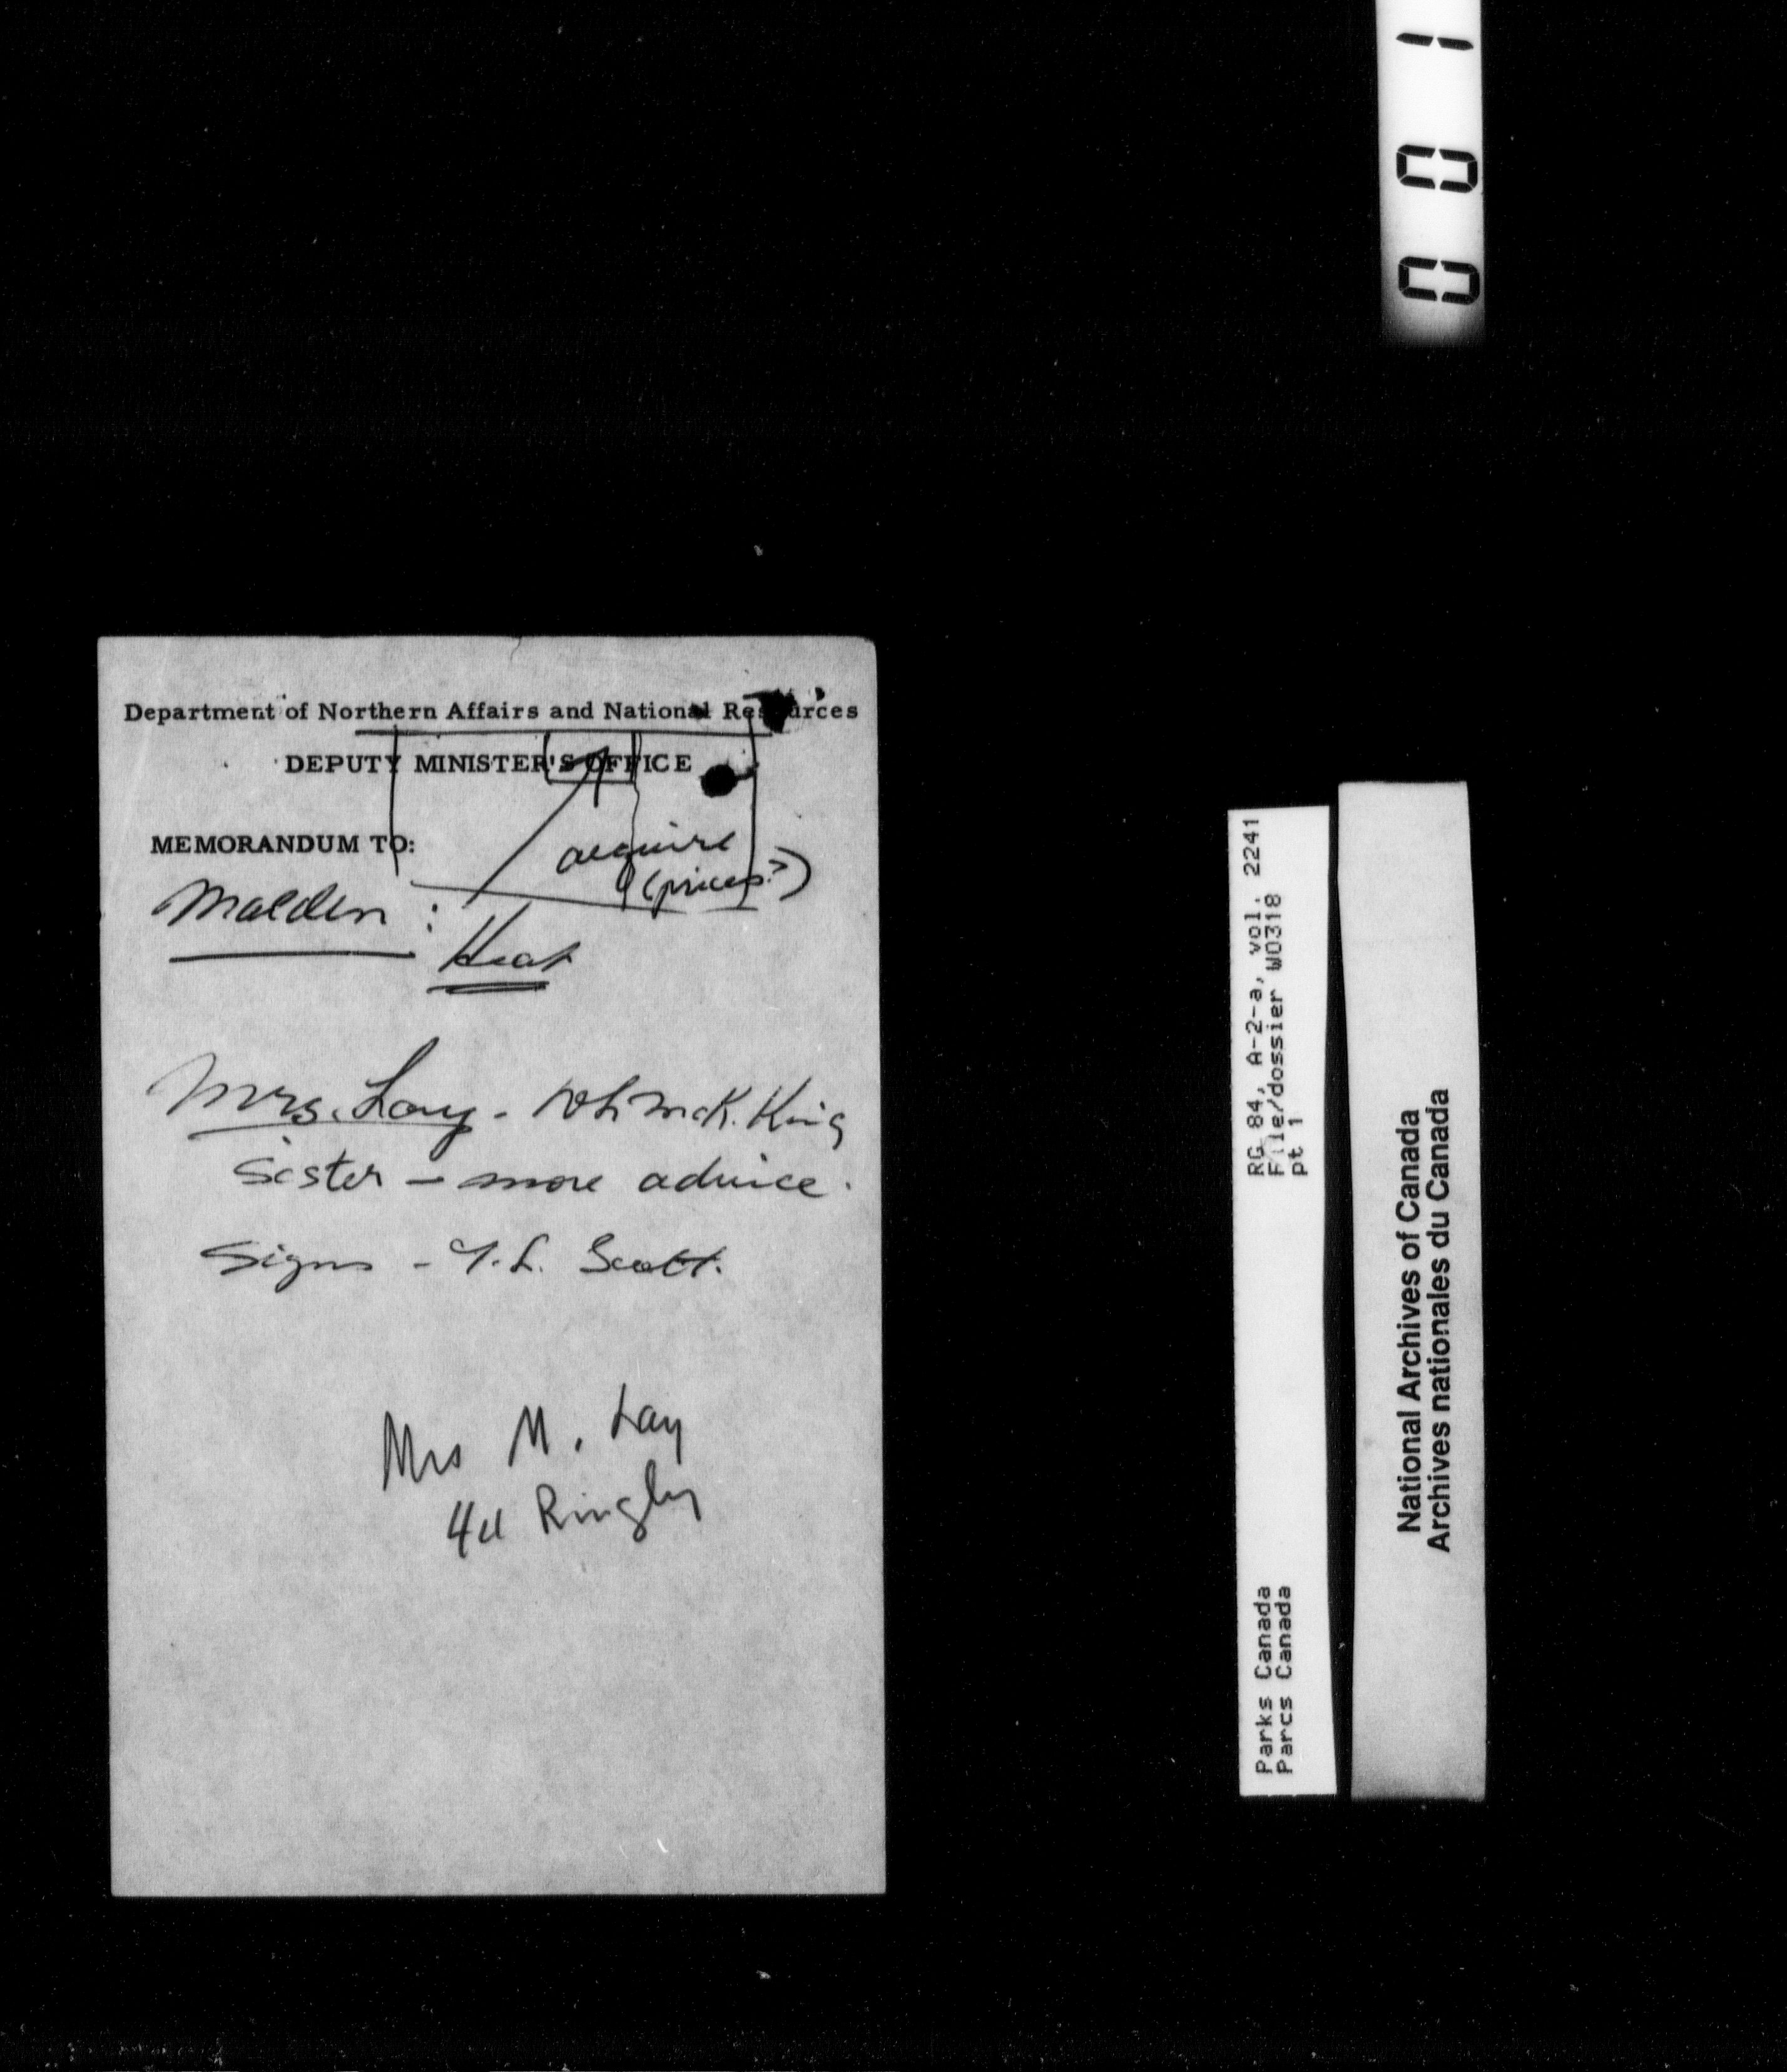 Department of Northern Affairs and National Resources
DEPUTY MINISTER'S OFFICE
MEMORANDUM TO:
acquire
(prices?)
Malden :
Heat
Mrs. Lay - Wh McK. King
Sister - more advice.
Signs - T.L. Scott.
Mrs M. Lay
44 Ringly
001
RG 84, A-2-a, vol. 2241
File/dossier W0318
pt 1
Parks Canada
Parcs Canada
National Archives of Canada
Archives nationales du Canada